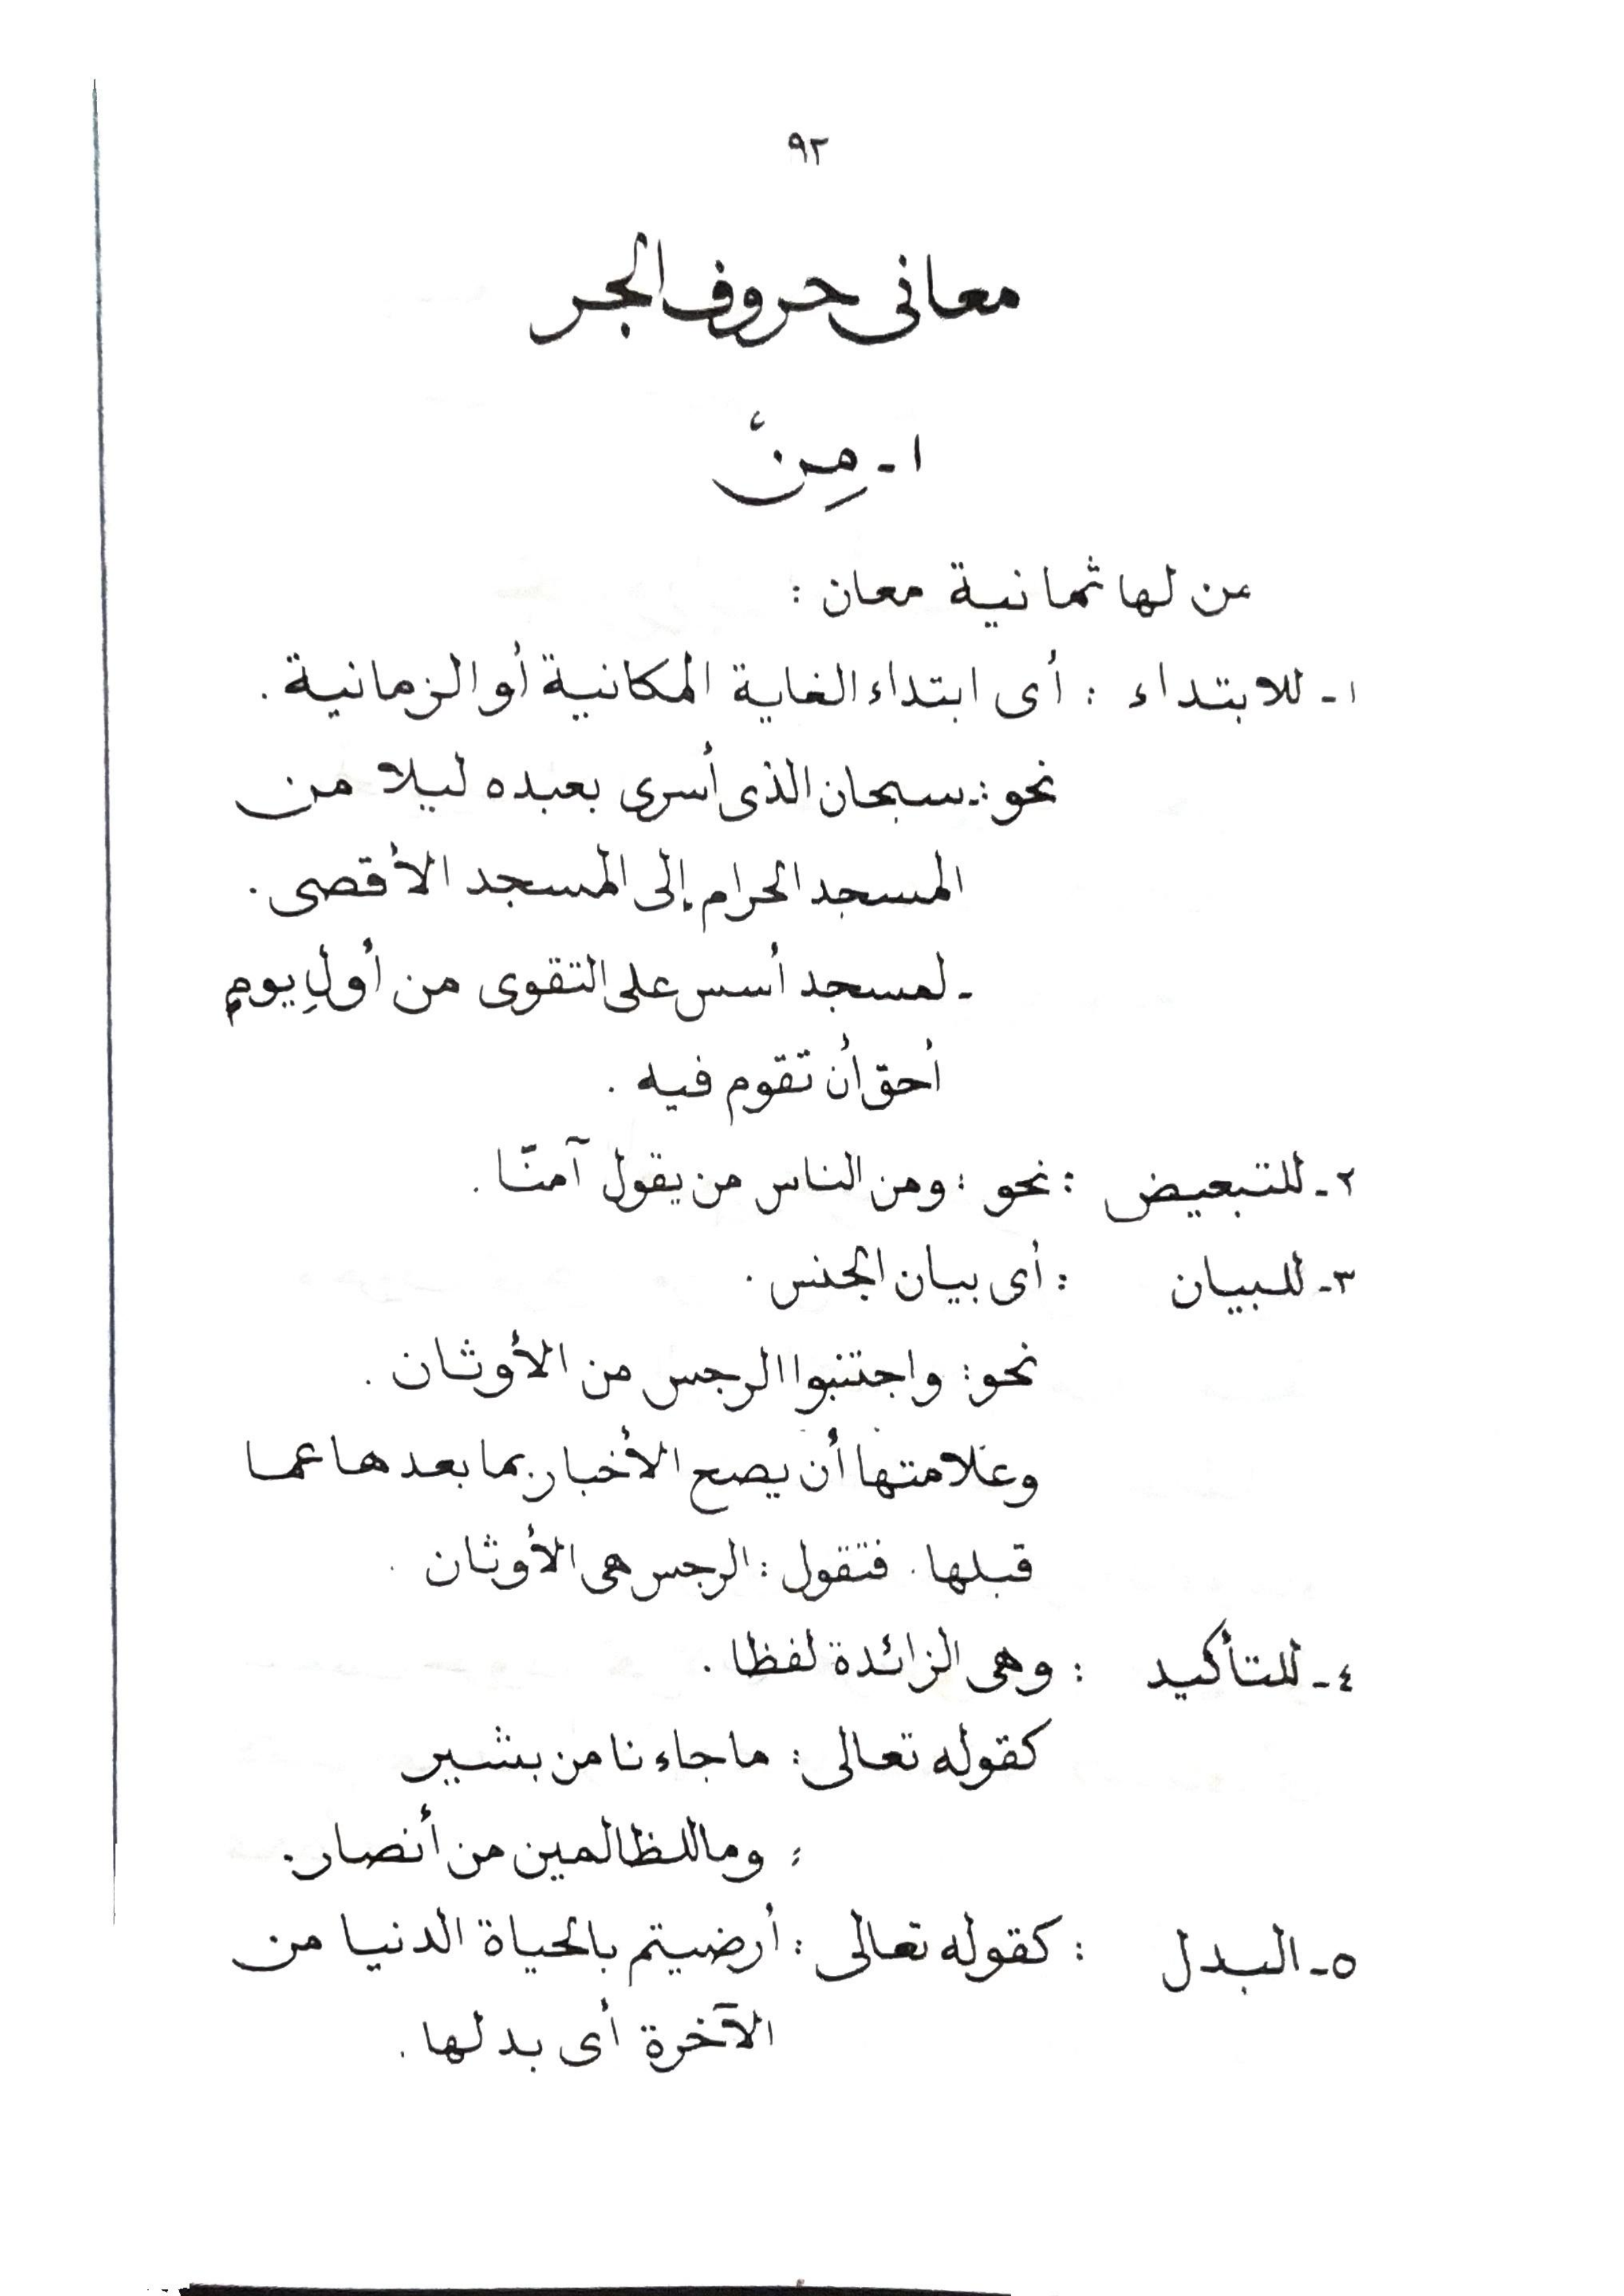 ٩٢
معانى حروف الجر
١ - مِنْ
من لها ثمانية معان :
١ - للابتداء : أى ابتداء الغاية المكانية أو الزمانية .
نحو : - سبحان الذى أسرى بعبده ليلا من
المسجد الحرام إلى المسجد الأقصى .
- لمسجد أسس على التقوى من أولِ يومٍ
أحق أن تقوم فيه .
٢ - للتبعيض : نحو : ومن الناس من يقول آمنّا .
٣ - للبيان : أى بيان الجنس .
نحو : واجتنبوا الرجس من الأوثان .
وعلامتها أن يصح الأخبار بما بعدها عما
قبلها . فتقول : الرجس هى الأوثان .
٤ - للتأكيد : وهى الزائدة لفظا .
كقوله تعالى : ما جاءنا من بشير
: وما للظالمين من أنصار .
٥ - البدل : كقوله تعالى : أرضيتم بالحياة الدنيا من
الآخرة أى بدلها .